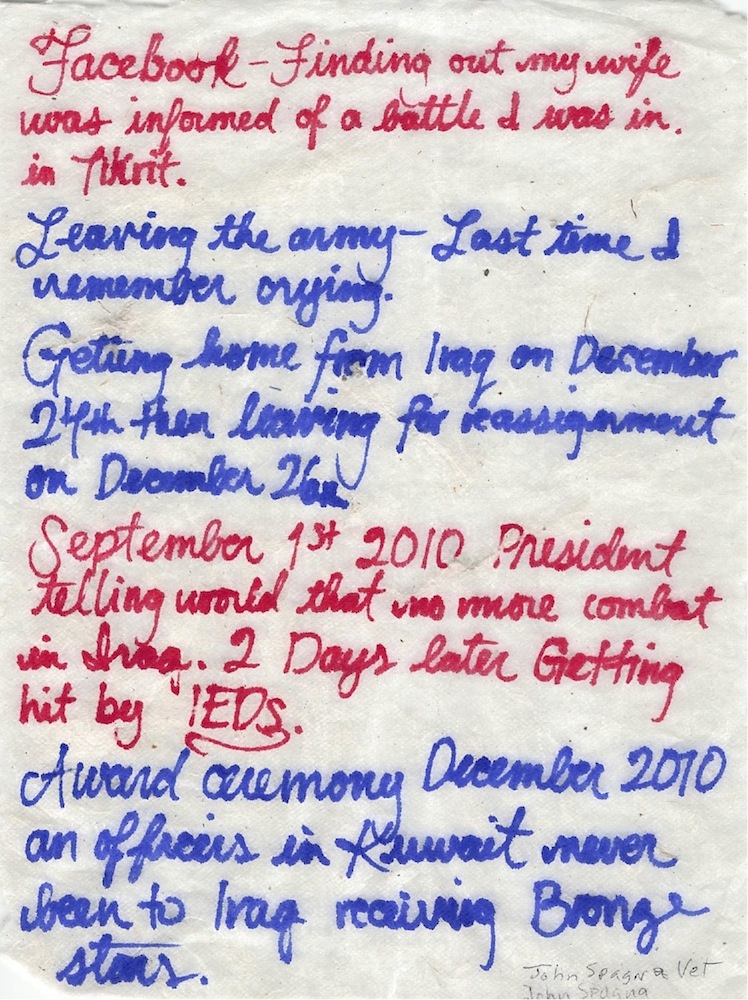 Facebook - Finding out my wife
was informed of a battle I was in.
in Tikrit.
Leaving the army - Last time I
remember crying.
Getting home from Iraq on December
24th then leaving for reassignment
on December 26th
September 1st 2010 President
telling world that no more combat
in Iraq. 2 Days later Getting
hit by IEDS.
Award ceremony December 2010
an officers in Kuwait never
been to Iraq receiving Bronze
stars.
John Vet
John